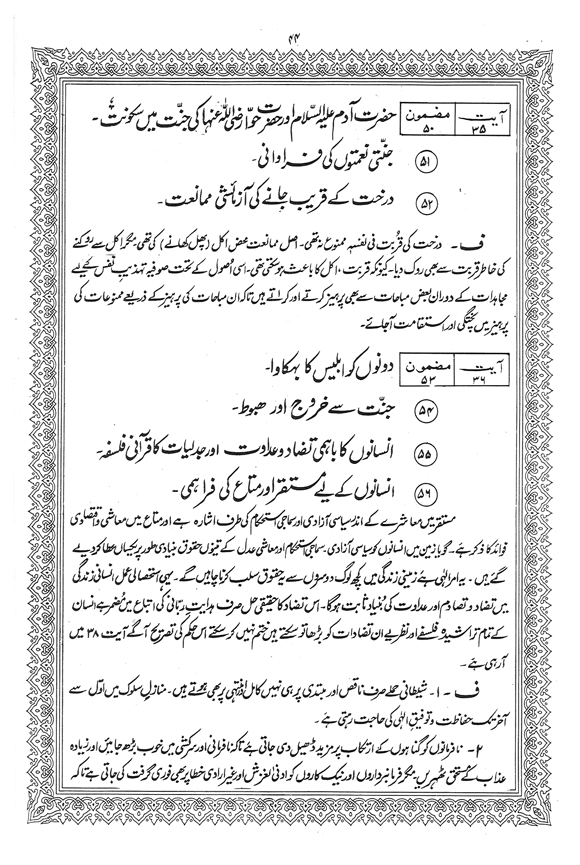 ۴۴
آیت ۳۵ مضمون ۵۰ حضرت آدم علیہ السلام اور حضرت حوا رضی اللہ عنہا کی جنّت میں سکونت۔
۵۱ جنّتی نعمتوں کی فراوانی۔
۵۲ درخت کے قریب جانے کی آزمائشی ممانعت۔
ف۔ درخت کی قُربت فی نفسہٖ ممنوع نہ تھی۔ اصل ممانعت محض اکل (پھل کھانے) کی تھی مگر اکل سے روکنے
کی خاطر قربت سے بھی روک دیا۔ کیونکہ قربت، اکل کا باعث ہو سکتی تھی۔ اسی اُصول کے تحت صوفیہ تہذیبِ نفس کے لیے
مجاہدات کے دوران بعض مباحات سے بھی پرہیز کرتے اور کراتے ہیں تاکہ ان مباحات کی پرہیز کے ذریعے ممنوعات کی
پرہیز میں پختگی اور استقامت آجائے۔
آیت ۳۶ مضمون ۵۳ دونوں کو ابلیس کا بہکاوا۔
۵۴ جنّت سے خروج اور ھبوط۔
۵۵ انسانوں کا باہمی تضاد و عداوت اور جدلیات کا قرآنی فلسفہ۔
۵۶ انسانوں کے لیے مستقر اور متاع کی فراہمی۔
مستقر میں معاشرے کے اندر سیاسی آزادی اور سماجی استحکام کی طرف اشارہ ہے اور متاع میں معاشی و اقتصادی
فوائد کا ذکر ہے۔ گویا زمین میں انسانوں کو سیاسی آزادی۔ سماجی استحکام اور معاشی عدل کے تینوں حقوق بنیادی طور پر یکساں عطا کر دیے
گئے ہیں۔ یہ امرِ الٰہی ہے زمینی زندگی میں کچھ لوگ دوسروں سے یہ حقوق سلب کرنا چاہیں گے۔ یہی استحصالی عمل انسانی زندگی
میں تضاد و تصادم اور عداوت کی بُنیاد ثابت ہوگا۔ اس تضاد کا حقیقی حل صرف ہدایتِ ربانی کی اتباع میں مُضمر ہے انسان
کے تمام تراشیدہ فلسفے اور نظریے ان تضادات کو بڑھا تو سکتے ہیں ختم نہیں کر سکتے اس حکم کی تصریح آگے آیت ۳۸ میں
آرہی ہے۔
ف۔ ۱۔ شیطانی حملے صرف ناقص اور مبتدی پر ہی نہیں کامل اور منتہی پر بھی ہوتے ہیں۔ منازلِ سلوک میں اوّل سے
آخر تک حفاظت و توفیقِ الٰہی کی حاجت رہتی ہے۔
۲۔ نافرمانوں کو گناہوں کے ارتکاب پر مزید ڈھیل دی جاتی ہے تاکہ نافرمانی اور سرکشی میں خوب بڑھ جائیں اور زیادہ
عذاب کے مستحق ٹھہریں۔ مگر فرمانبرداروں اور نیک کاروں کو ادنیٰ لغزش اور غیر ارادی خطا پر بھی فوری گرفت کی جاتی ہے تاکہ